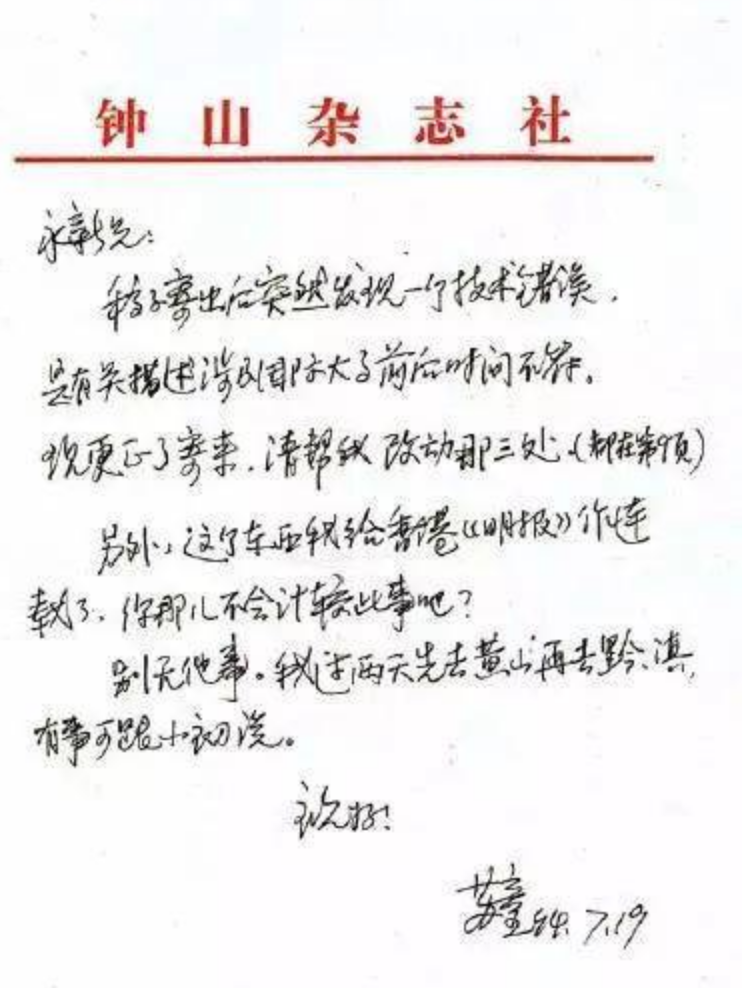 钟山杂志社
永新兄:
稿子寄出后突然发现一个技术错误,
是有关描述涉及国际大事前后时间不符。
现更正了寄来,请帮我改动那三处(都在第9页)
另外,这个东西我给香港《明报》作连
载了,你那儿不会计较此事吧?
别无他事。我过两天先去黄山再去黔、滇,
有事可跟小初说。
祝好!
苏童 7.19